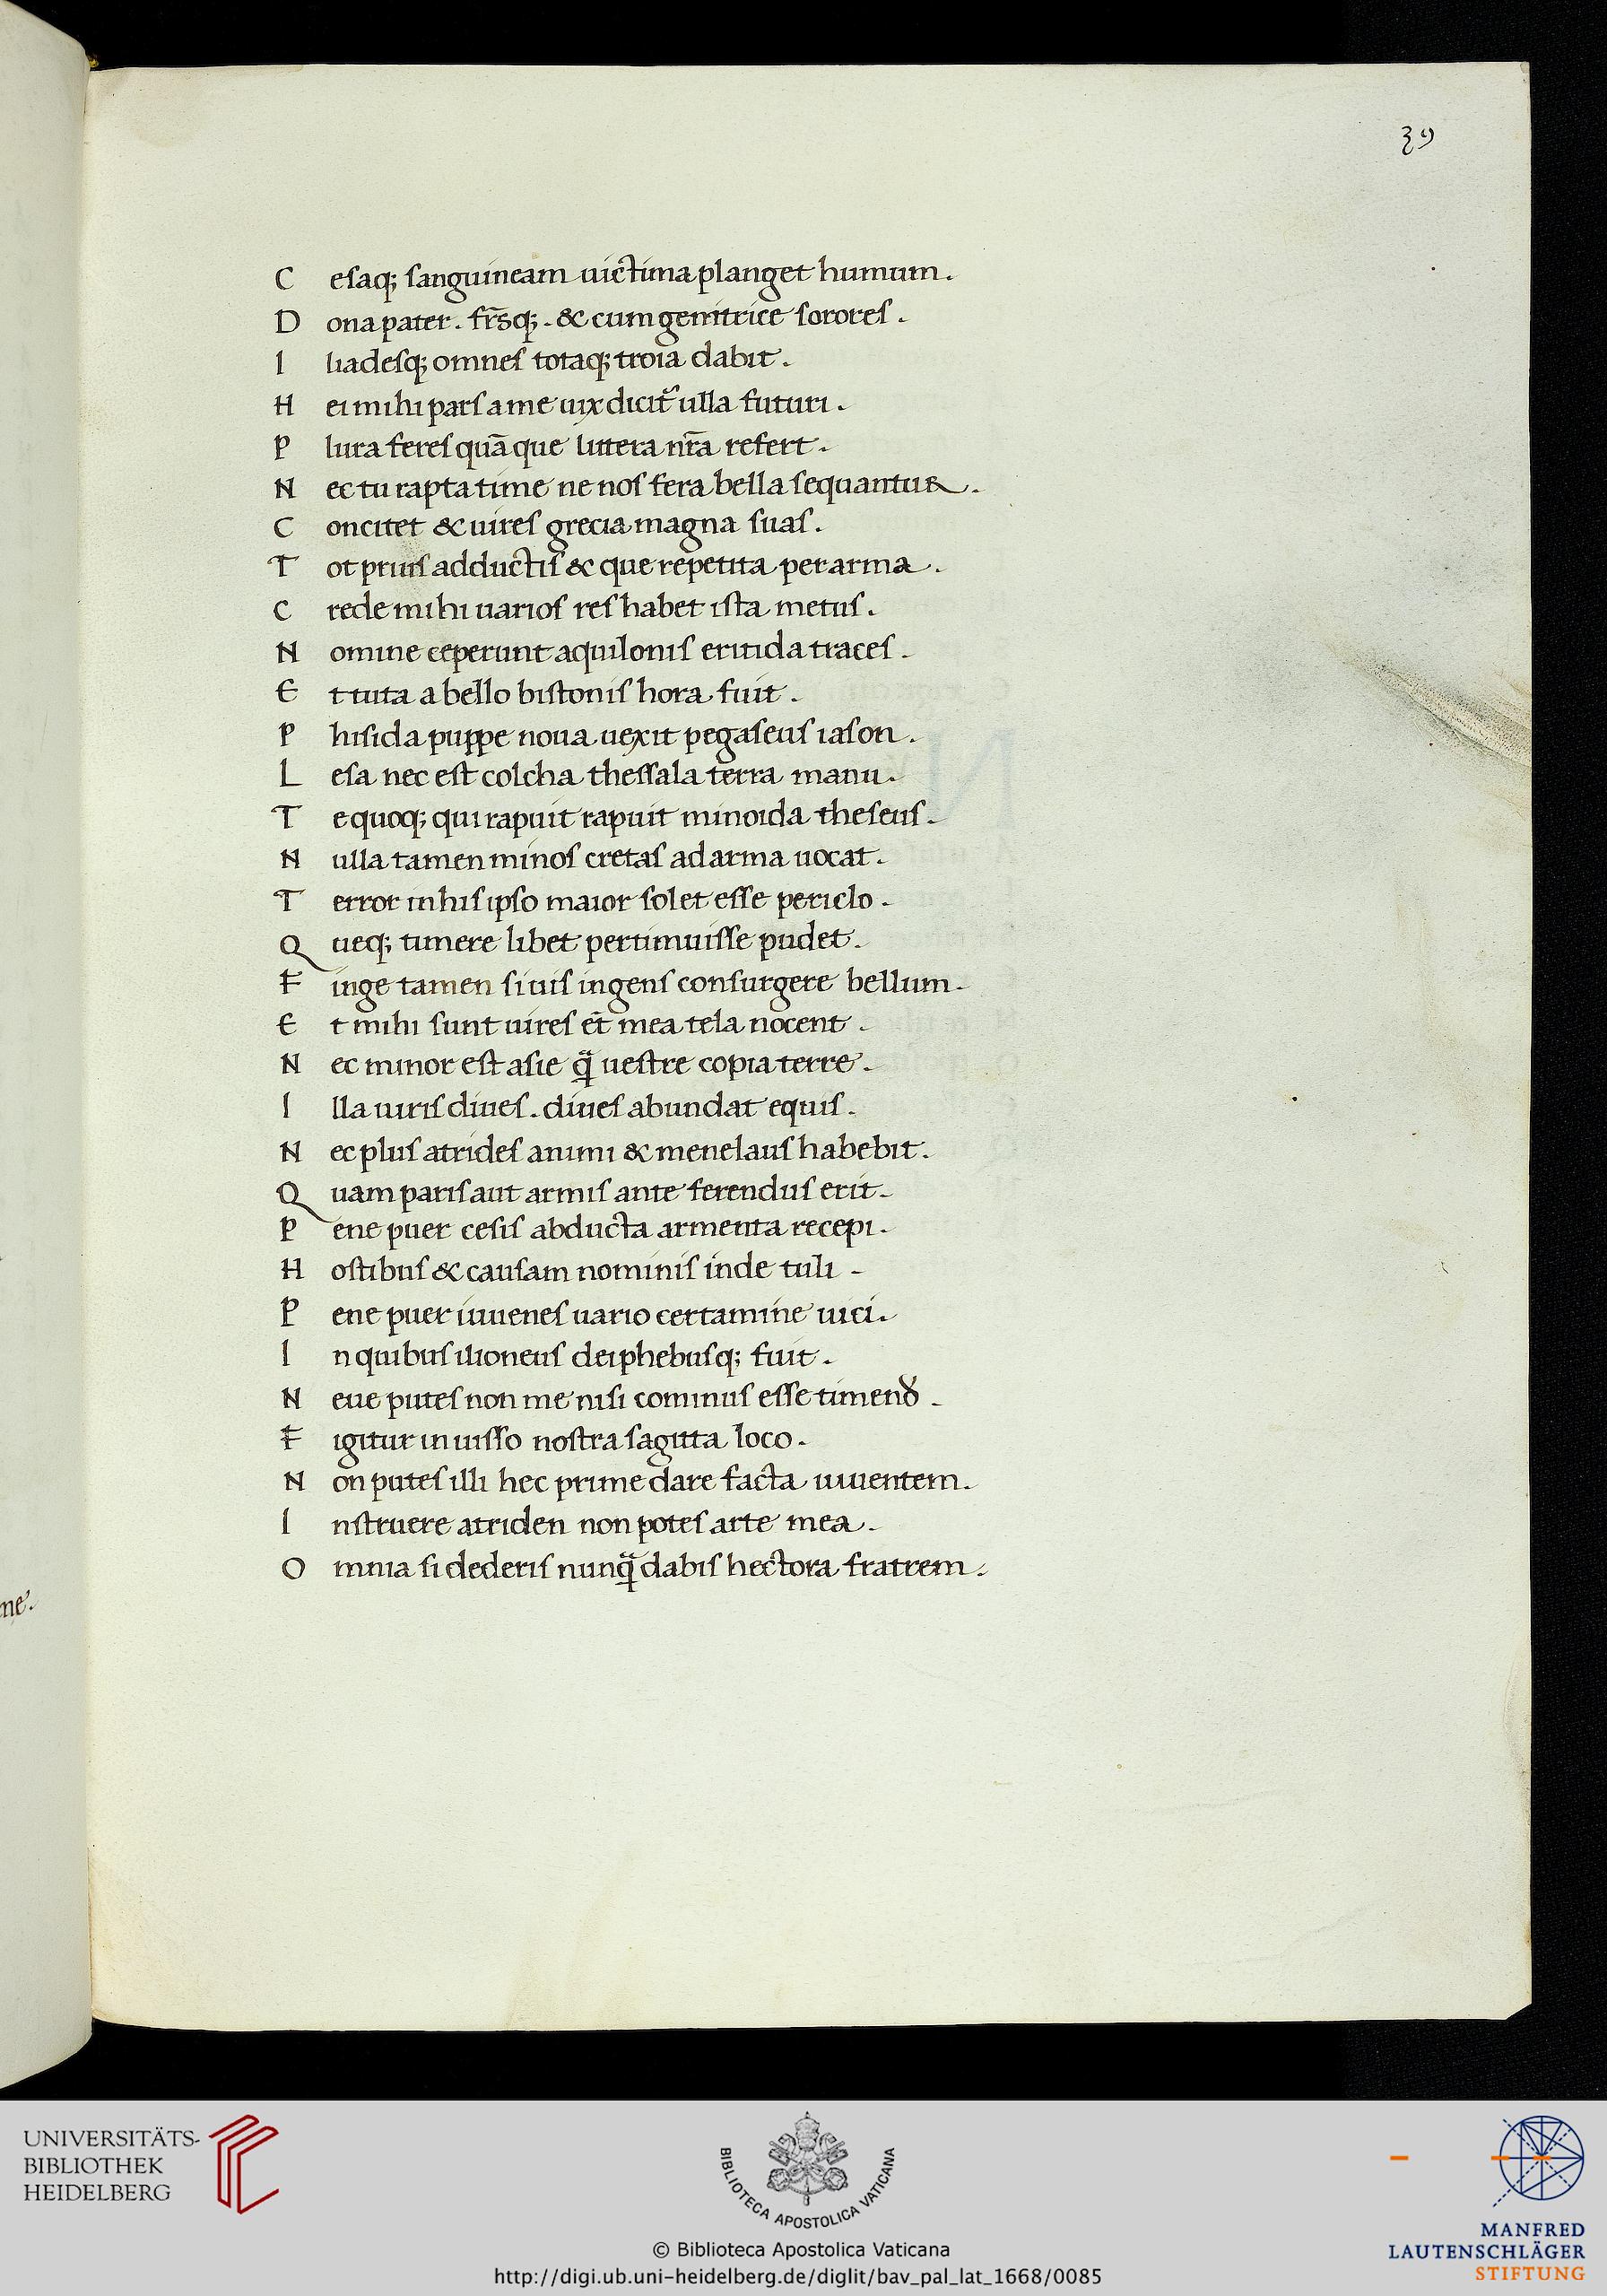 39
C esaq; sanguineam uictima planget humum.
D ona pater. fr̄sq;. & cum genitrice sorores.
I liadesq; omnes totaq; troia dabit.
H ei mihi pars a me uix dicit᷑ ulla futuri.
P lura feres quā que littera nr̄a refert.
N ec tu rapta time ne nos fera bella sequantur.
C oncitet & uires grecia magna suas.
T ot prius adductis & que repetita per arma.
C rede mihi uarios res habet ista metus.
N omine ceperunt aquilonis eritida traces.
E t tuta a bello bistonis hora fuit.
P hisida puppe noua uexit pegaseus iason.
L esa nec est colcha thessala terra manu.
T e quoq; qui rapuit rapuit minoida theseus.
N ulla tamen minos cretas ad arma uocat.
T error in his ipso maior solet esse periclo.
Q ueq; timere libet pertimuisse pudet.
F inge tamen si uis ingens consurgere bellum.
E t mihi sunt uires et̄ mea tela nocent.
N ec minor est asie q̄ uestre copia terre.
I lla uiris diues. diues abundat equis.
N ec plus atrides animi & menelaus habebit.
Q uam paris aut armis ante ferendus erit.
P ene puer cesis abducta armenta recepi.
H ostibus & causam nominis inde tuli.
P ene puer iuuenes uario certamine uici.
I n quibus ilioneus deiphebusq; fuit.
N eue putes non me nisi cominus esse timend᷑.
F igitur in uisso nostra sagitta loco.
N on putes illi hec prime dare facta iuuentem.
I nstruere atriden non potes arte mea.
O mnia si dederis nunq̄ dabis hectora fratrem.
ne.
UNIVERSITÄTS-
BIBLIOTHEK
HEIDELBERG
BIBLIOTECA APOSTOLICA VATICANA
© Biblioteca Apostolica Vaticana
http://digi.ub.uni-heidelberg.de/diglit/bav_pal_lat_1668/0085
MANFRED
LAUTENSCHLÄGER
STIFTUNG